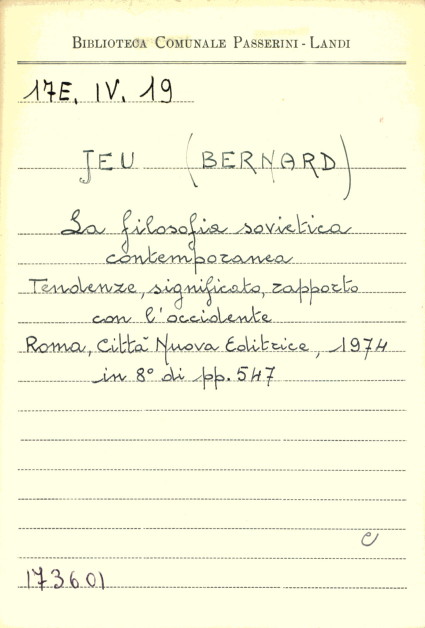 BIBLIOTECA COMUNALE PASSERINI - LANDI
17E. IV. 19
JEU (BERNARD)
La filosofia sovietica
contemporanea
Tendenze, significato, rapporto
con l'occidente
Roma, Città Nuova Editrice, 1974
in 8° di pp. 547
C
173601